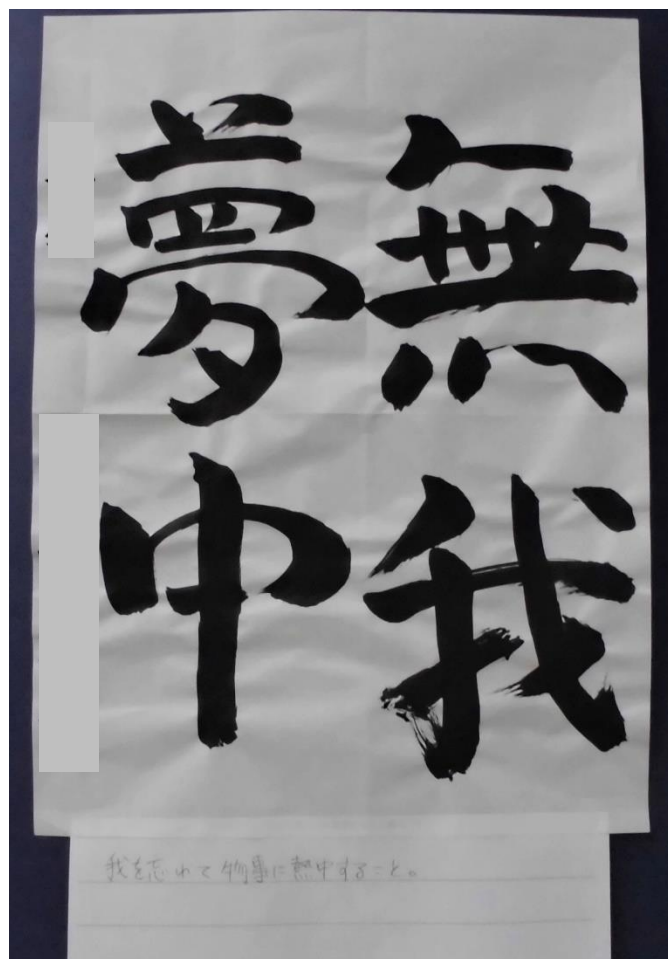 無我
夢中
我を忘れて物事に熱中すること。